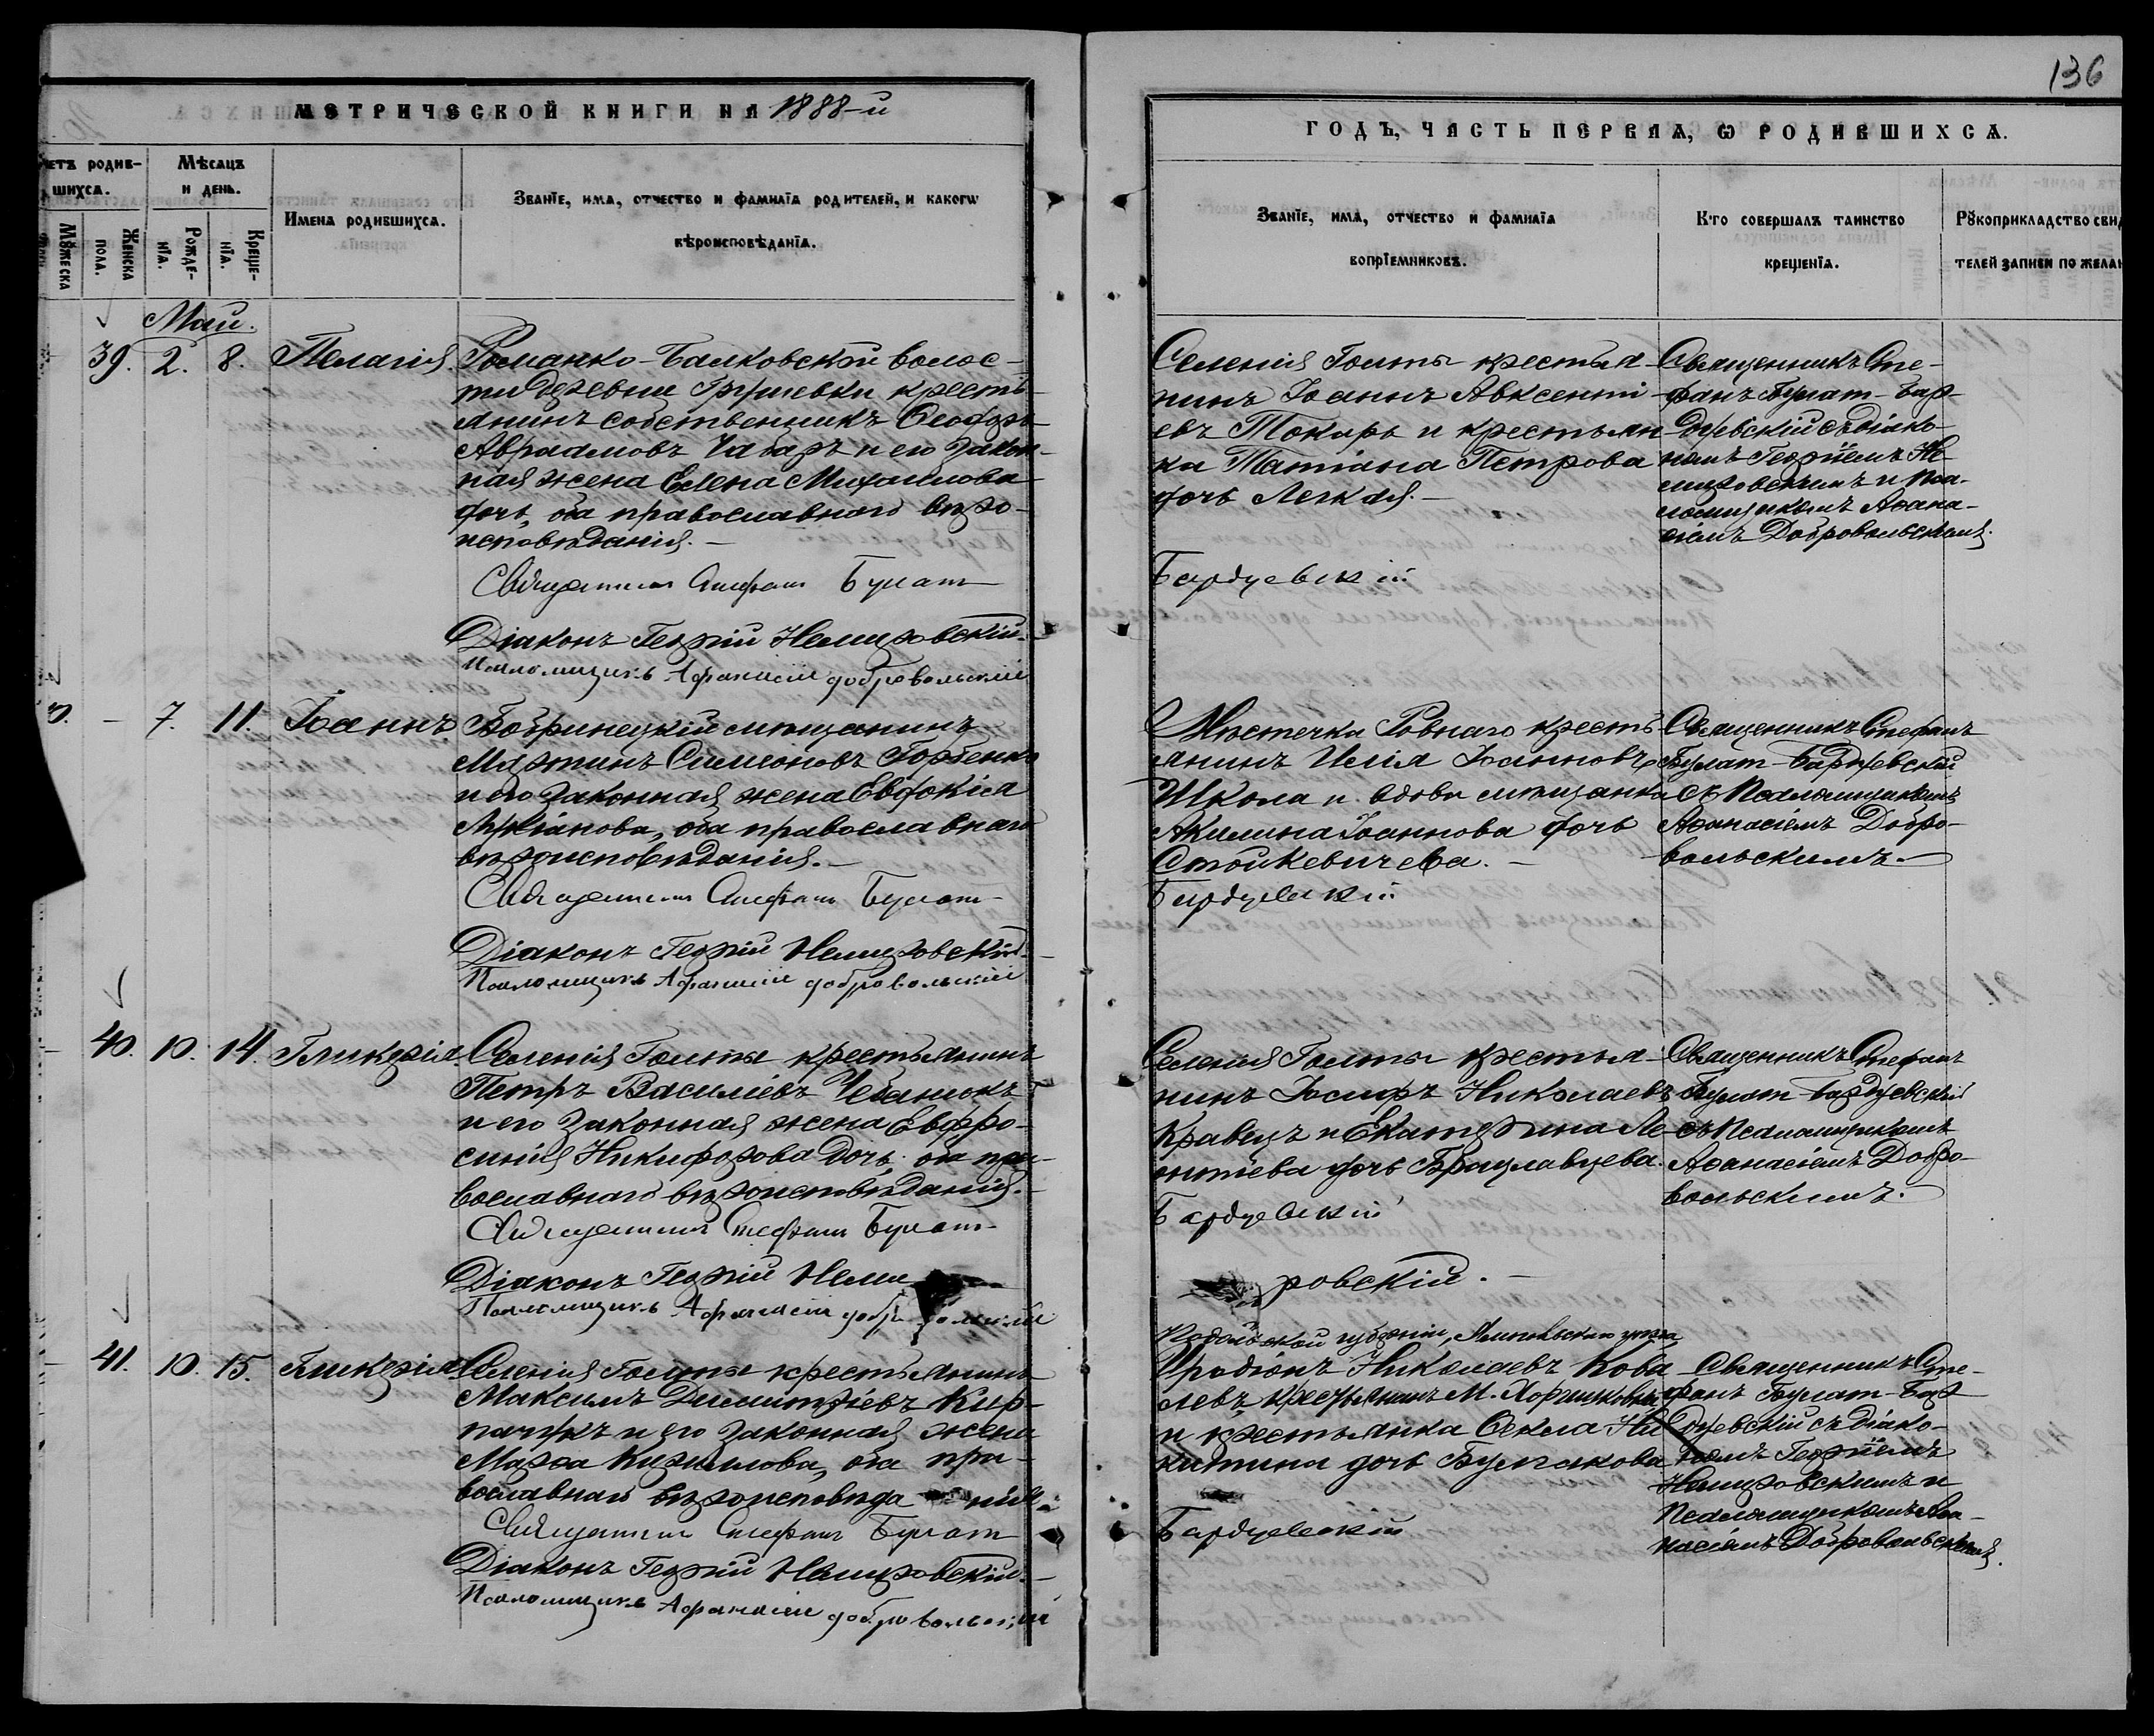 136
МЕТРИЧЕСКОЙ КНИГИ НА 1888-й
ГОДЪ, ЧАСТЬ ПЕРВАЯ, Ѡ РОДИВШИХСЯ.
етъ родив-
шихся.
Мѣсяцъ
и день.
Мꙋжеска
Женска
пола.
Рожде-
нїя.
Креще-
нїя.
Имена родившихся.
Званїе, имя, отчество и фамилїя родителей, и какогѡ
вѣроисповѣданїя.
Званїе, имя, отчество и фамилїя
воспрїемниковъ.
Кто совершалъ таинство
крещенїя.
Рꙋкоприкладство свид
телей записи по желан
Май.
39. 2. 8. Пелагія.
Романко-Балковской волос-
ти деревни Грушевки кресть-
янинъ собственникъ Ѳеодоръ
Авраамовъ Чабаръ и его закон-
ная жена Елена Михайлова
дочь, оба православнаго вѣро-
исповѣданія.—
Священникъ Стефанъ Булат-
Діаконъ Георгій Немировскій.
Псаломщикъ Афанасій Добровольскій
Селенія Голты крестья-
нинъ Іоаннъ Авксенті-
евъ Токарь и крестьян
ка Татіана Петрова
дочь Легкая.—
Бардуевскій
Священникъ Сте-
фанъ Булат-Бар-
дуевскій съ діако-
номъ Георгіемъ Не-
мировскимъ и Пса-
ломщикомъ Аѳана-
сіемъ Добровольскимъ.
— 7. 11. Іоаннъ
Бобринецкій мѣщанинъ
Мартинъ Симеоновъ Горбенко
и его законная жена Евдокія
Лукіанова, оба православнаго
вѣроисповѣданія.—
Священникъ Стефанъ Булат-
Діаконъ Георгій Немировскій.
Псаломщикъ Афанасій Добровольскій
Мѣстечка Ровнаго кресть
янинъ Илія Іоанновъ
Школа и вдова мѣщанка
Акилина Іоаннова дочь
Стойкевичева.—
Бардуевскій
Священникъ Стефанъ
Булат-Бардуевскій
съ Псаломщикомъ
Аѳанасіемъ Добро-
вольскимъ.—
40. 10. 14. Гликерія.
Селенія Голты крестьянинъ
Петръ Василіевъ Чебанюкъ
и его законная жена Евфро-
синія Никифорова дочь, оба пра-
вославнаго вѣроисповѣданія.—
Священникъ Стефанъ Булат-
Діаконъ Георгій Неми
Псаломщикъ Афанасій Добровольскій
Селенія Голты крестья-
нинъ Іосифъ Николаевъ
Кравецъ и Екатерина Ле-
онтіева дочь Брацлавцева.
Бардуевскій
ровскій.—
Священникъ Стефанъ
Булат-Бардуевскій
съ Псаломщикомъ
Аѳанасіемъ Добро-
вольскимъ.—
41. 10. 15. Гликерія
Селенія Голты крестьянинъ
Максимъ Димитріевъ Кир-
пачукъ и его законная жена
Марѳа Кириллова, оба пра-
вославнаго вѣроисповѣданія.
Священникъ Стефанъ Булат
Діаконъ Георгій Немировскій.—
Псаломщикъ Афанасій Добровольскій
Подольской губерніи, уѣзда
Иродіонъ Николаевъ Кова
левъ, крестьянинъ м.
и крестьянка Ѳекла Ни
китина дочь Булгакова
Бардуевскій
Священникъ Сте-
фанъ Булат-Бар
дуевскій съ діако-
номъ Георгіемъ
Немировскимъ и
Псаломщикомъ Аѳа-
насіемъ Добровольскимъ.